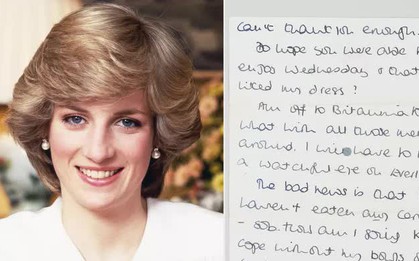 can't thank you enough.
Do hope you were able
enjoy Wednesday & that
liked my dress?
Am off to Britannia
what with all those
around. I will have to
a watchful eye on
The bad news is that
haven't eaten any
— sob. How am I going
cope without my